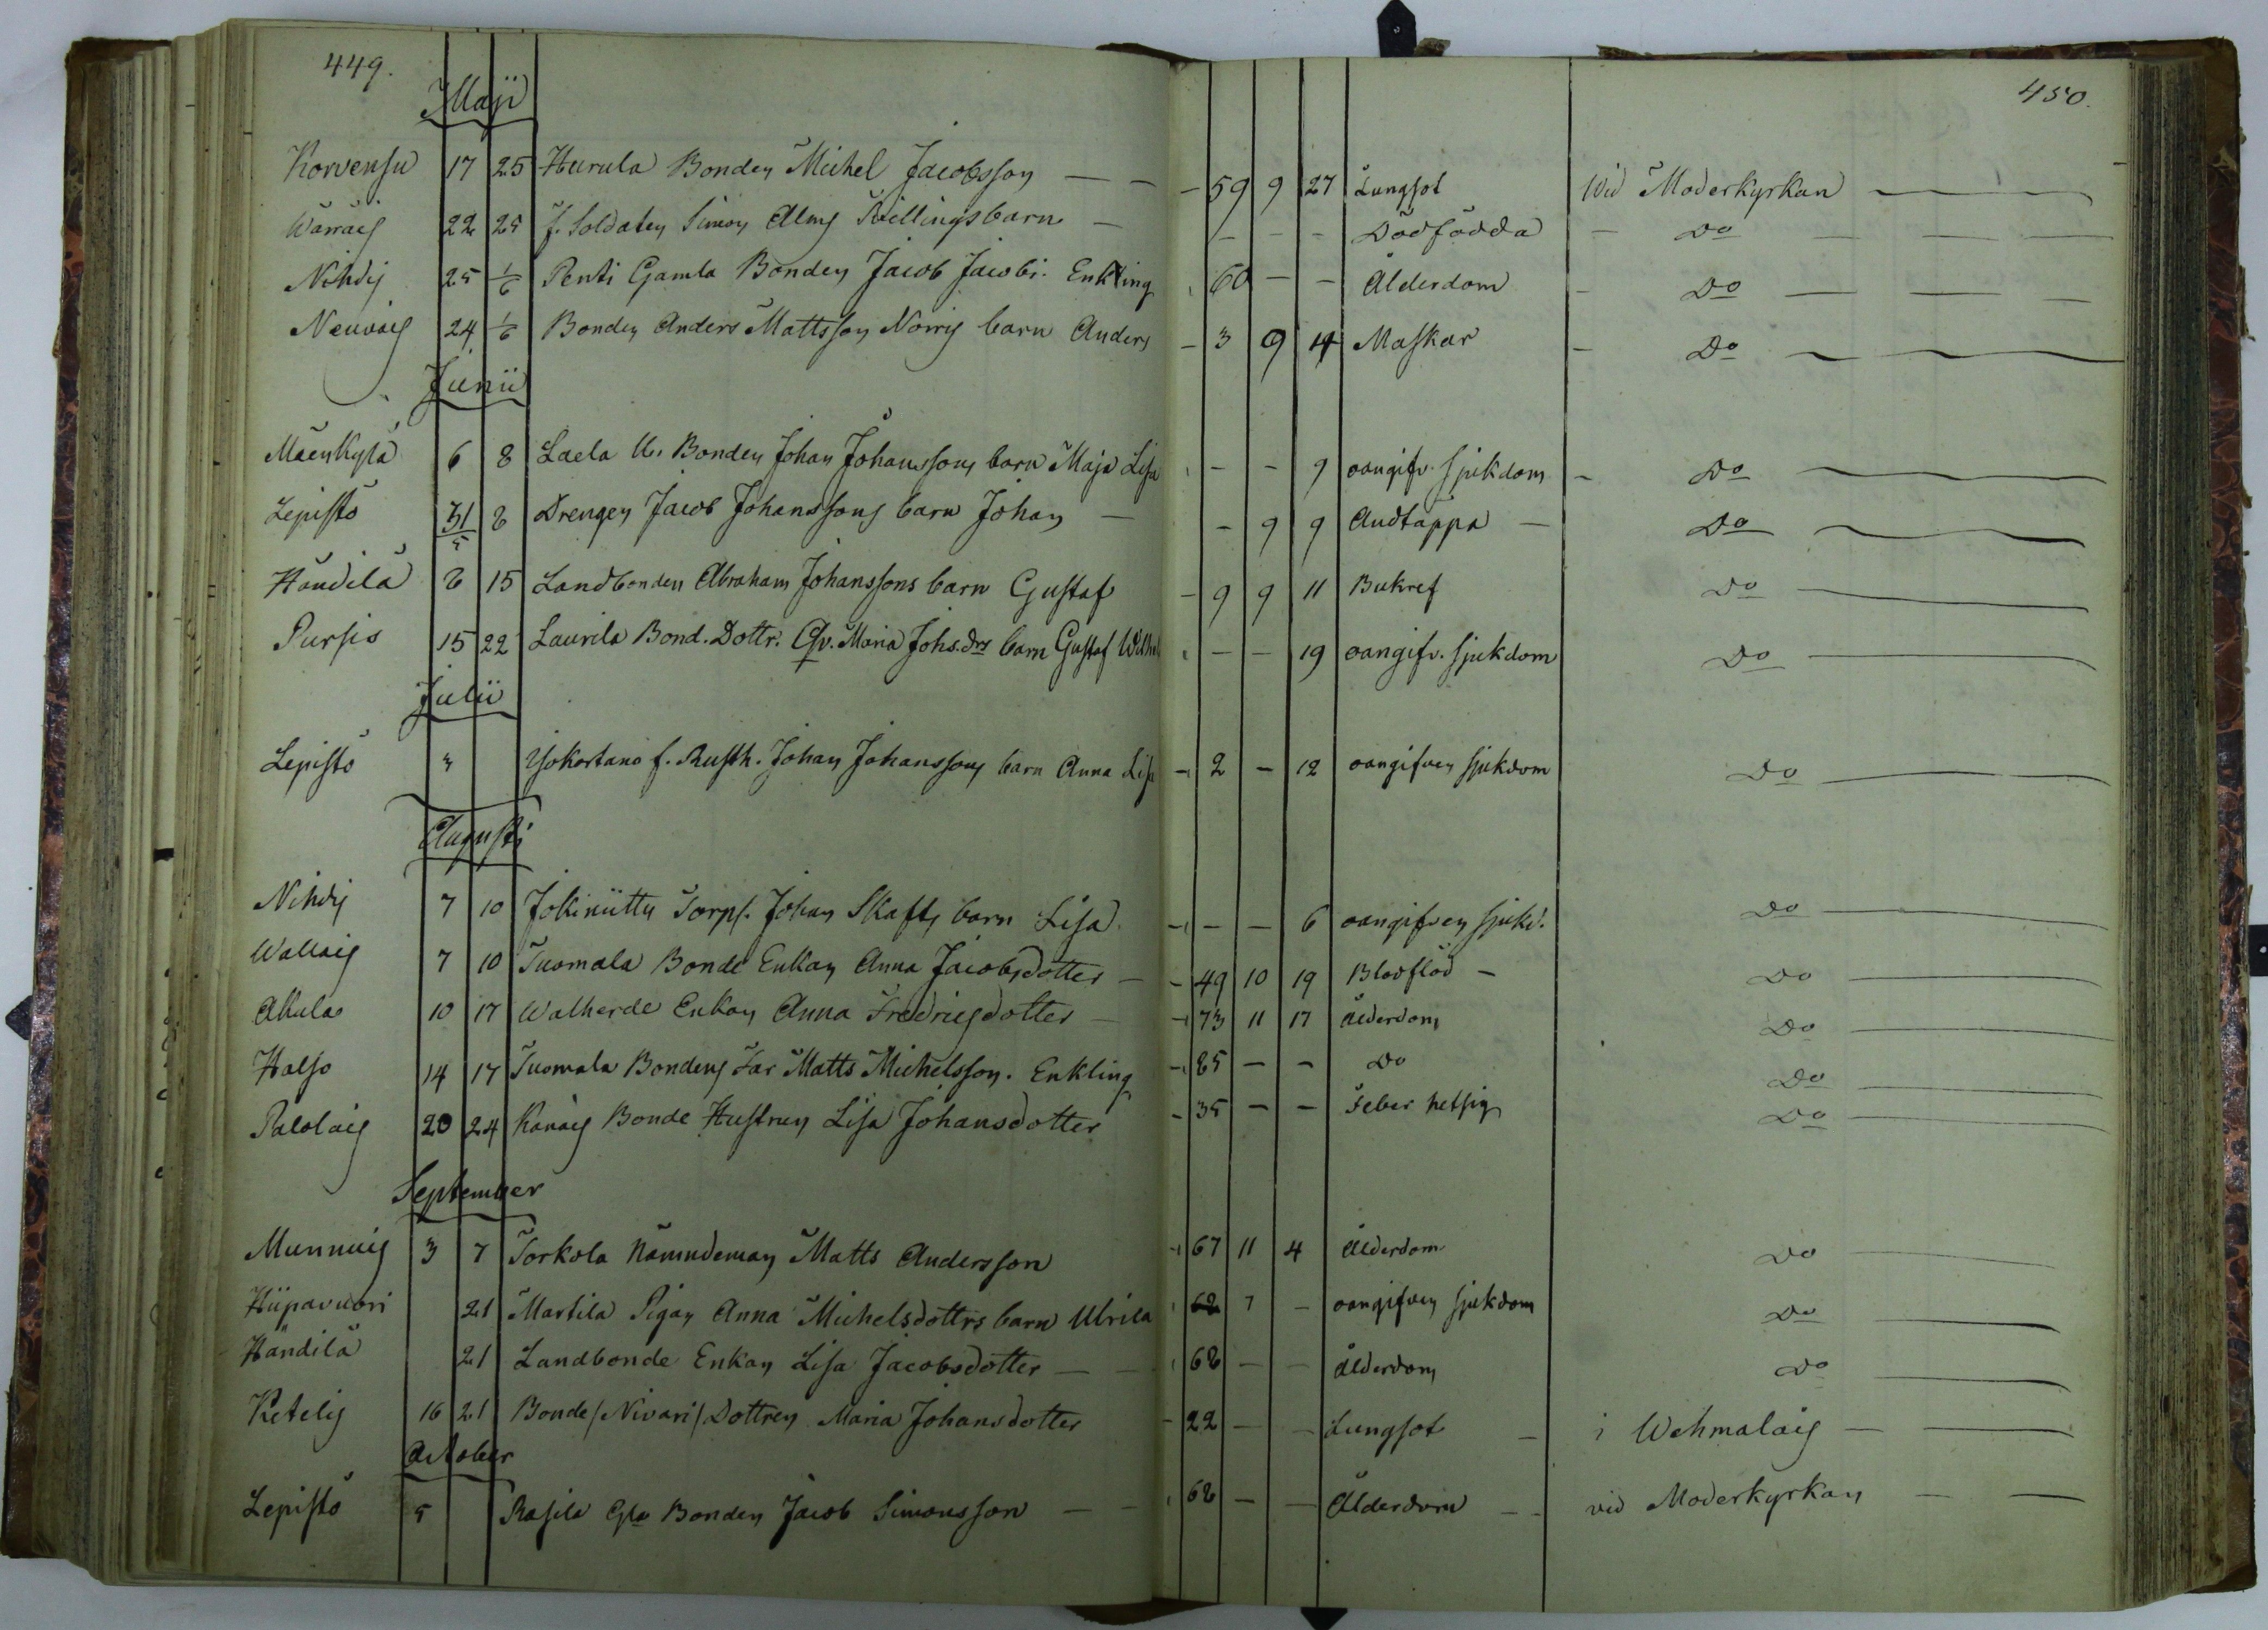 449.
450.
Maji
Korvensu 17 25 Hurula Bonden Michel Jacobsson — — — 59 9 27 Lungsot Wid Moderkyrkan
22 25 f. Soldaten Simon Alms Tvillingsbarn — — — — Dödfödda — Do
Nihdis 25 1/6 Penti Gamla Bonden Jacob Jacobs. Enkling 60 — — Ålderdom — Do
Neuvois 24 1/6 Bonden Anders Mattsson Norris barn Anders — 3 9 14 Maskar — Do
Junii
Mäenkylä 6 8 Laela Bonden Johan Johanssons barn Maja Lisa — — 9 oangifv. sjukdom — Do
Lepistö 31/5 8 Drengen Jacob Johanssons barn Johan — — 9 9 Andtäppa — Do
Händilä 8 15 Landbonden Abraham Johanssons barn Gustaf — 9 9 11 Bukref Do
Pursis 15 22 Laurila Bond. Dottr. Qv. Maria Johs.drs barn Gustaf Wilhel — — 19 oangifv. sjukdom Do
Julii
Lepistö 4 Isokartano f. Rusth. Johan Johanssons barn Anna Lisa — 2 — 12 oangifven sjukdom Do
Augusti
Nihdis 7 10 Jokiniittu Torps. Johan Skafts barn Lisa — — — 6 oangifven sjukd. Do
Wallais 7 10 Tuomala Bonde Enkan Anna Jacobsdotter — — 49 10 19 Blodflod — Do
Akulas 10 17 Walherde Enkan Anna Fredricsdotter — — 73 11 17 ålderdom Do
Halso 14 17 Tuomala Bondens Far Matts Michelsson. Enkling — 85 — — Do Do
Palolais 20 24 Bonde Hustrun Lisa Johansdotter — 35 — — Feber hetsig Do
September
Munnuis 3 7 Torkola Nämndeman Matts Andersson — 67 11 4 Ålderdom Do
Hiipavuori 21 Martila Pigan Anna Michelsdottrs barn Ulrica 7 — oangifven sjukdom Do
Händilä 21 Landbonde Enkan Lisa Jacobsdotter — — 68 — — ålderdom Do
Ketelis 16 21 Bonde /Nivari/ Dottren Maria Johansdotter — 22 — — Lungsot — i Wehmalais —
October
Lepistö 5 Rasila Gla Bonden Jacob Simonsson — — 68 — — Ålderdom — — vid Moderkyrkan —